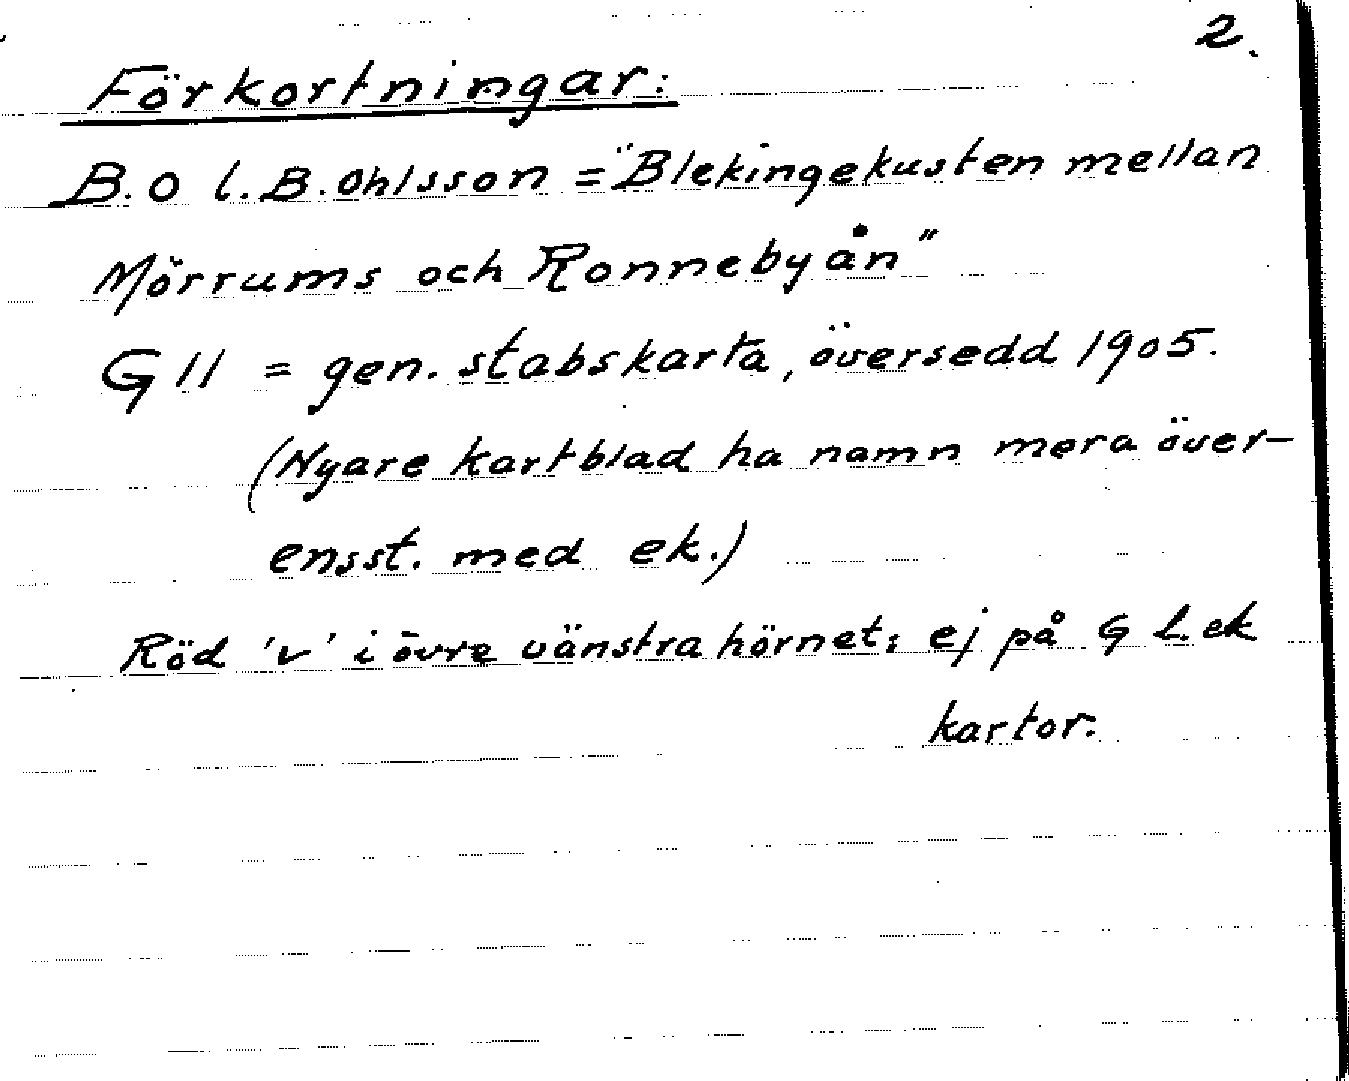 2.
Förkortningar:
B.O l. B. Ohlsson = "Blekingekusten mellan
Mörrums och Ronnebyån"
G 11 = gen. stabskarta, översedd 1905.
(Nyare kartblad ha namn mera över-
ensst. med ek.)
Röd 'v' i övre vänstra hörnet: ej på G l. ek
kartor.